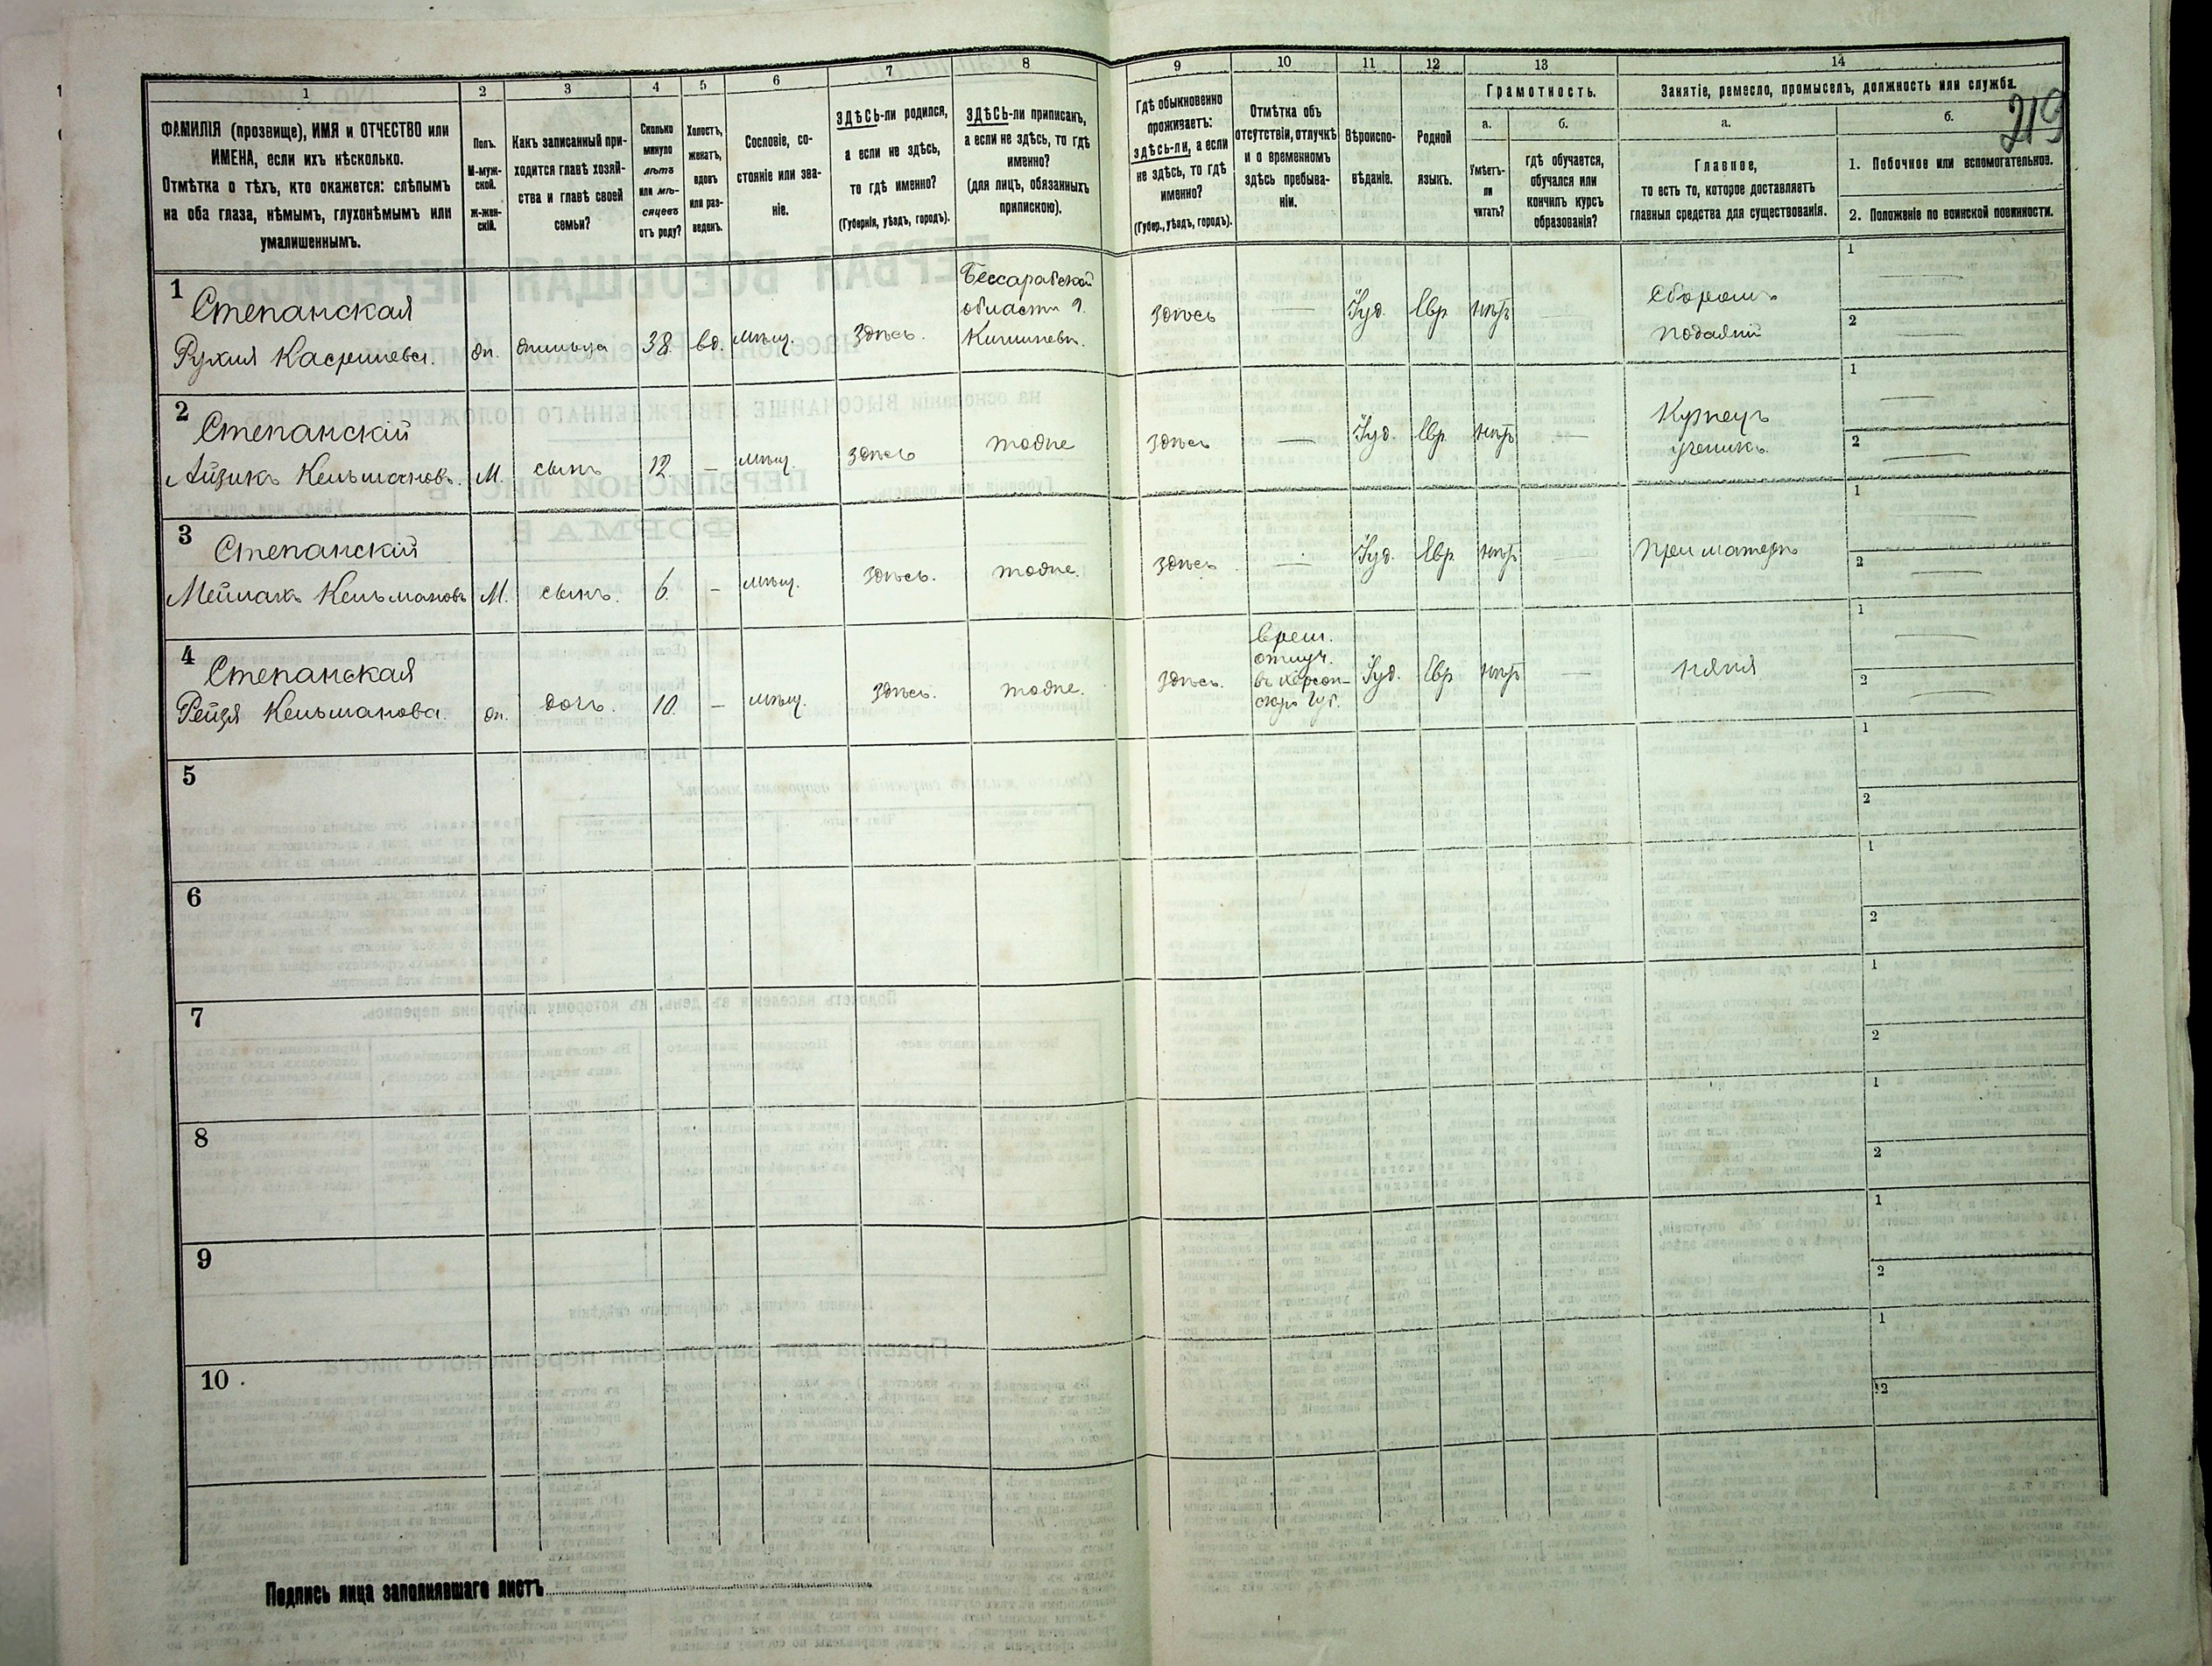 1 2 3 4 5 6 7 8 9 10 11 12 13 14
219
ФАМИЛІЯ (прозвище), ИМЯ и ОТЧЕСТВО или
ИМЕНА, если ихъ нѣсколько.
Отмѣтка о тѣхъ, кто окажется: слѣпымъ
на оба глаза, нѣмымъ, глухонѣмымъ или
умалишеннымъ.
Полъ.
М-муж-
ской.
Ж-жен-
скій.
Какъ записанный при-
ходится главѣ хозяй-
ства и главѣ своей
семьи?
Сколько
минуло
лѣтъ
или мѣ-
сяцевъ
отъ роду?
Холостъ,
женатъ,
вдовъ
или раз-
веденъ.
Сословіе, со-
стояніе или зва-
ніе.
ЗДѢСЬ-ли родился,
а если не здѣсь,
то гдѣ именно?
(Губернія, уѣздъ, городъ).
ЗДѢСЬ-ли приписанъ,
а если не здѣсь, то гдѣ
именно?
(для лицъ, обязанныхъ
припискою).
Гдѣ обыкновенно
проживаетъ:
здѣсь-ли, а если
не здѣсь, то гдѣ
именно?
(Губер., уѣздъ, городъ).
Отмѣтка объ
отсутствіи, отлучкѣ
и о временномъ
здѣсь пребыва-
ніи.
Вѣроиспо-
вѣданіе.
Родной
языкъ.
Грамотность.
а.
Умѣетъ-
ли
читать?
б.
гдѣ обучается,
обучался или
кончилъ курсъ
образованія?
Занятіе, ремесло, промыселъ, должность или служба.
а.
Главное,
то есть то, которое доставляетъ
главныя средства для существованія.
б.
1. Побочное или вспомогательное.
2. Положеніе по воинской повинности.
1 Степанская
38. вд. мѣщ. здѣсь.
Бессарабской
области г.
здѣсь — Іуд. Евр. нѣтъ —
подаяній
1 —
2 —
2 Степанскій
Айзикъ Кельмановъ. М. сынъ 12 — мѣщ. здѣсь тоже здѣсь — Іуд. Евр. нѣтъ —
Кузнецъ
ученикъ.
1 —
2 —
3 Степанскій
Кельмановъ М. сынъ. 6. — мѣщ. здѣсь. тоже. здѣсь — Іуд. Евр. нѣтъ — при матери
1 —
2 —
4 Степанская
Рейзя Кельманова. жн. дочь. 10. — мѣщ. здѣсь. тоже. здѣсь.
врем.
отлуч.
въ Херсон-
скую губ.
Іуд. Евр. нѣтъ — няня
1 —
2 —
5
1
2
6
1
2
7
1
2
8
1
2
9
1
2
10
1
2
Подпись лица заполнявшаго листъ